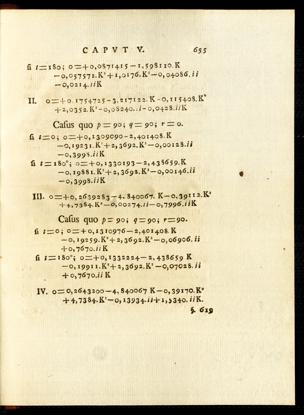 CAPVT V. 655
si t=180; 0=+0,0871415-1,598110.K
-0,057571.K²+1,0176.K³-0,04086.ii
-0,0214.iiK
II. 0=+0.1754725-3,217122.K-0,115408.K²
+2,0352.K³-0,08240.ii-0,0428.iiK
Casus quo p=90; q=90; r=0.
si t=0; 0=+0,1309090-2,401408.K
-0,19231.K²+2,3692.K³-0,00128.ii
-0,3998.iiK
si t=180°; 0=+0,1330193-2,438659.K
-0,19881.K²+2,3692.K³-0,00146.ii
-0,3998.iiK
III. 0=+0,2639283-4,840067.K-0,39112.K²
+4,7384.K³-0,00274.ii-0,7996.iiK
Casus quo p=90; q=90; r=90.
si t=0; 0=+0,1310976-2,401408.K
-0,19259.K²+2,3692.K³-0,06906.ii
+0,7670.iiK
si t=180°; 0=+0,1332224-2,438659 K
-0,19911.K²+2,3692.K³-0,07028.ii
+0,7670.iiK
IV. 0=0,2643200-4,840067 K-0,39170.K²
+4,7384.K³-0,13934.ii+1,5340.iiK.
§. 619